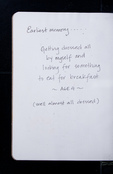 Earliest memory....
Getting dressed all
by myself and
looking for something
to eat for breakfast
~ AGE 4 ~
(and almost all dressed)